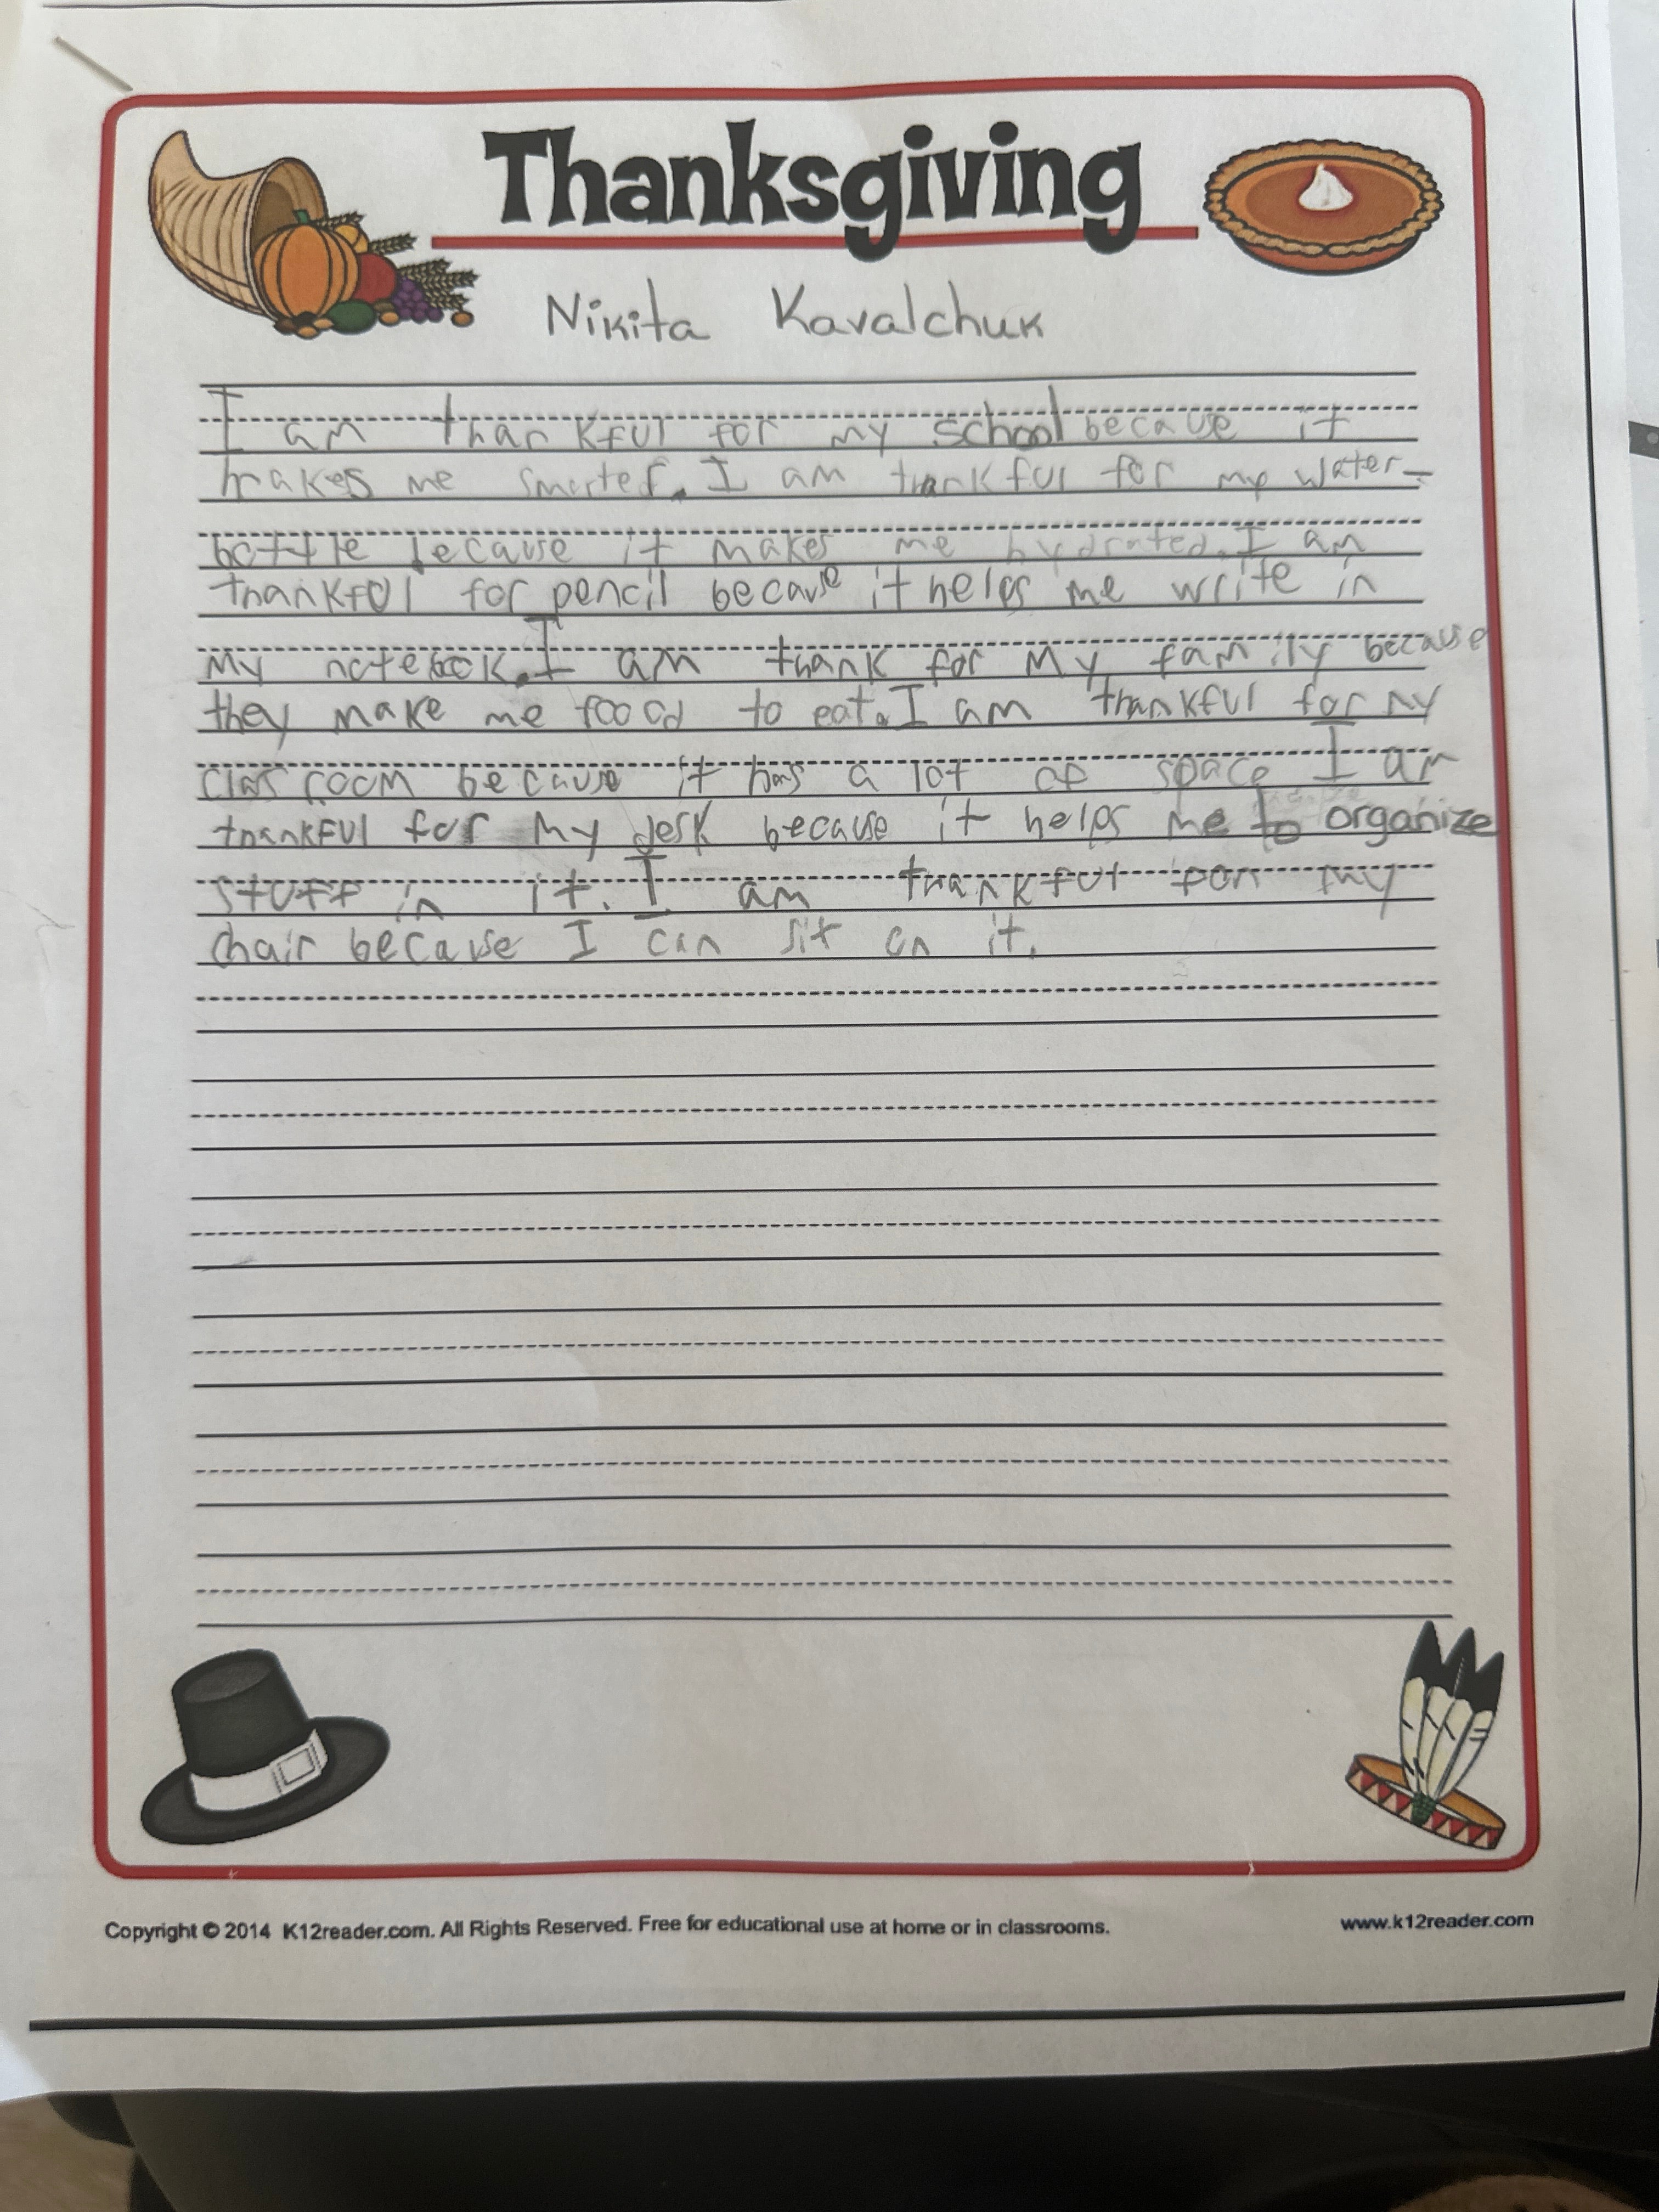 Thanksgiving
Nikita Kavalchuk
I am thankful for my school because it
makes me smarter. I am thankful for my water-
bottle because it makes me hydrated. I am
thankful for pencil because it helps me write in
my notebook. I am thank for my family because
they make me food to eat. I am thankful for my
clasroom because it has a lot of space I am
thankful for my desk because it helps me to organize
stuff in it. I am thankful for my
chair because I can sit on it.
Copyright © 2014 K12reader.com. All Rights Reserved. Free for educational use at home or in classrooms.
www.k12reader.com